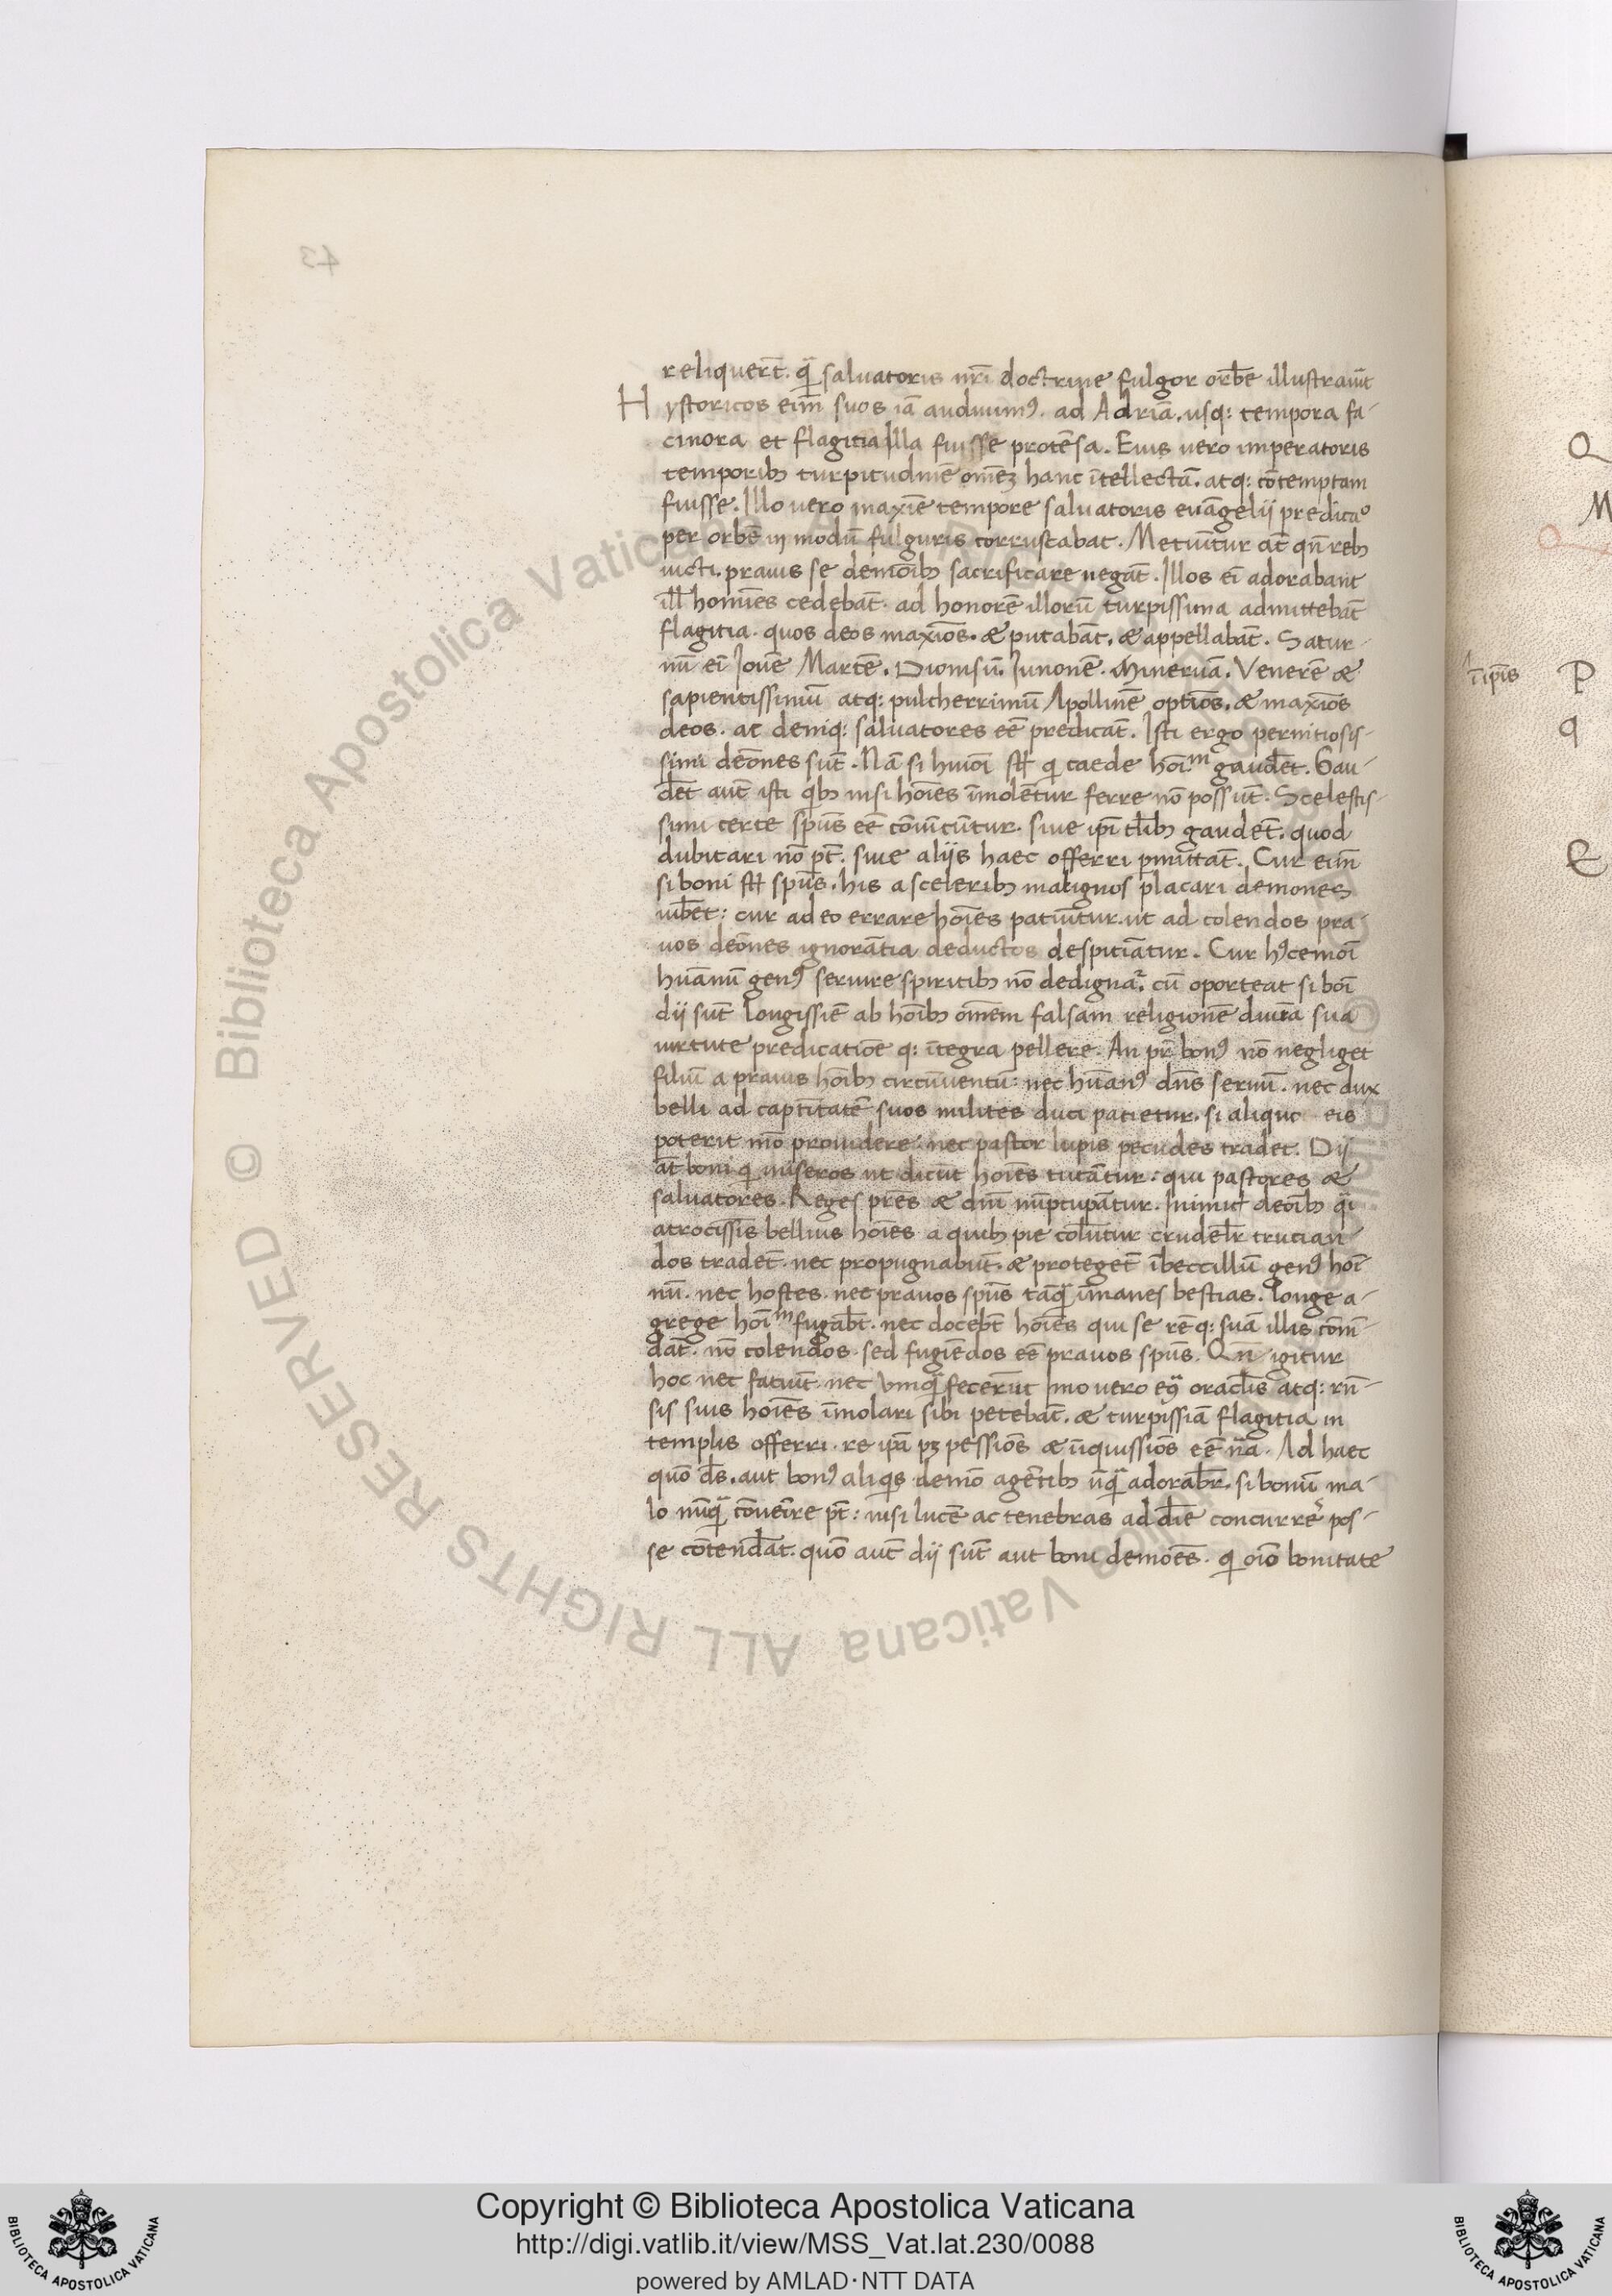 reliquert̄. q̈ saluatoris nr̄i doctrine fulgor orbē illustrauīt
Hystoricos eīm suos iā audiuimꝰ. ad Adriā. usq: tempora fa-
cinora et flagitia illa fuisse protēsa. Eius uero imperatoris
temporibꝫ turpitudinē om̄eʒ hanc ītellectā. atq: cōtemptam
fuisse. Illo uero maxīe tempore saluatoris euāgelij predicao
per orbē in modū fulguris corruscabat. Metuūtur āt qn̄ rebꝫ
uicti. prauis se demōibꝫ sacrificare negāt. Illos eī adorabant
ill̄ homīes cedebāt. ad honorē illorū turpissima admittebāt
flagitia. quos deos maxīos. & putabāt. & appellabāt. Satur-
nū eī Iouē Martē. Dionisū. Iunonē. Mineruā. Venerē &
sapientissimū atq: pulcherrimū Apollinē optīos. & maxīos
deos. ac deniq: saluatores eē predicāt. Isti ergo pernitiosis-
simi demōnes sūt. Nā si huiōi st̄ q̄ caede hoīm gaudēt. Gau-
dēt aūt isti qbꝫ nisi hoīes īmolētur ferre nō possūt. Scelestis-
simi certe spūs eē cōuicūtur. siue ipī tl̄ibꝫ gaudēt. quod
dubitari nō pt̄. siue alijs haec offerri pmittāt. Cur eīm
si boni st̄ spūs. his a sceleribꝫ malignos placari demones
iubēt: cur adeo errare hoīes patiūtur. ut ad colendos pra-
uos demōnes ignorātia deductos despitiātur. Cur hꝰcemōi
huānū genꝰ seruire spiritibꝫ nō dedignar̄. cū oporteat si boī
dij sūt longissīe ab hoībꝫ om̄em falsam religionē diuīa sua
uirtute predicatiōe q: ītegra pellere. An pr̄ bonꝰ nō negliget
filiū a prauis hoībꝫ circūuentū: nec huānꝰ dn̄s seruū. nec dux
belli ad captītatē suos milites duci patietur. si aliquo eis
poterit mō prouidere: nec pastor lupis pecudes tradet. Dij
āt boni q̄ miseros ut dicūt hoīes tutātur: qui pastores &
saluatores. Reges pr̄es & dn̄i nūpcupātur. inimic̄ demōibꝫ q̄
atrocissīs belluis hoīes a quibꝫ pie colūtur crudelr̄ trucian-
dos tradēt. nec propugnabūt. & protegēt ībeccillū genꝰ hoī-
nū. nec hostes. nec prauos spūs tāq̄ īmanes bestias. longe a-
grege hoīm fugabt̄. nec docebt̄ hoīes qui se rēq: suā illis cōm̄-
dāt. nō colendos. sed fugiēdos eē prauos spūs. Qn̄ igitur
hoc nec fatiūt. nec vnq̄ fecerūt imo uero eꝝ oracl̄is atq: rn̄-
sis suis hoīes īmolari sibi petebāt. & turpissīa flagitia in
templis offerri. re ipā pʒ pessīos & īiquissīos eē n̄a. Ad haec
quō ds̄. aut bonꝰ aliqs demō agētibꝫ ūq̄ adorabr̄. si bonū ma-
lo nūq̄ cōuenīre pt̄: nisi lucē ac tenebras ad dīe concurrē pos-
se cōtendāt. quō aūt dij sūt aut boni demōēs. q̄ oīo bonitate
īip̄is
Q
M
P
q
&
43
© Biblioteca Apostolica Vaticana ALL RIGHTS RESERVED
Copyright © Biblioteca Apostolica Vaticana
http://digi.vatlib.it/view/MSS_Vat.lat.230/0088
powered by AMLAD·NTT DATA
BIBLIOTECA APOSTOLICA VATICANA
BIBLIOTECA APOSTOLICA VATICANA